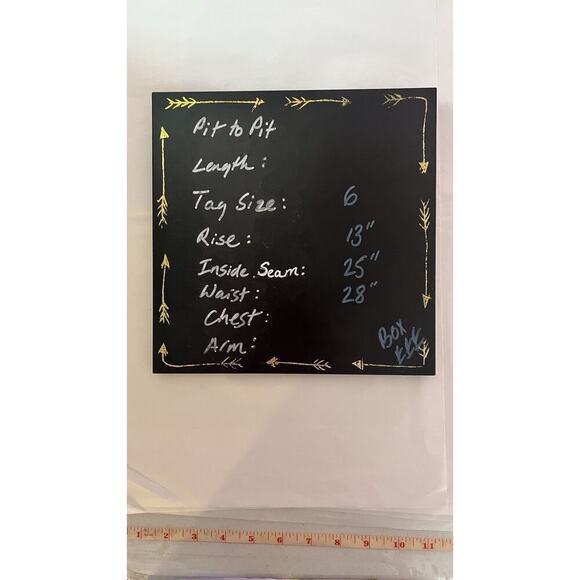 Pit to Pit
Length:
Tag Size: 6
Rise: 13"
Inside Seam: 25"
Waist: 28"
Chest:
Arm:
BOX
EEE
1 2 3 4 5 6 7 8 9 10 11